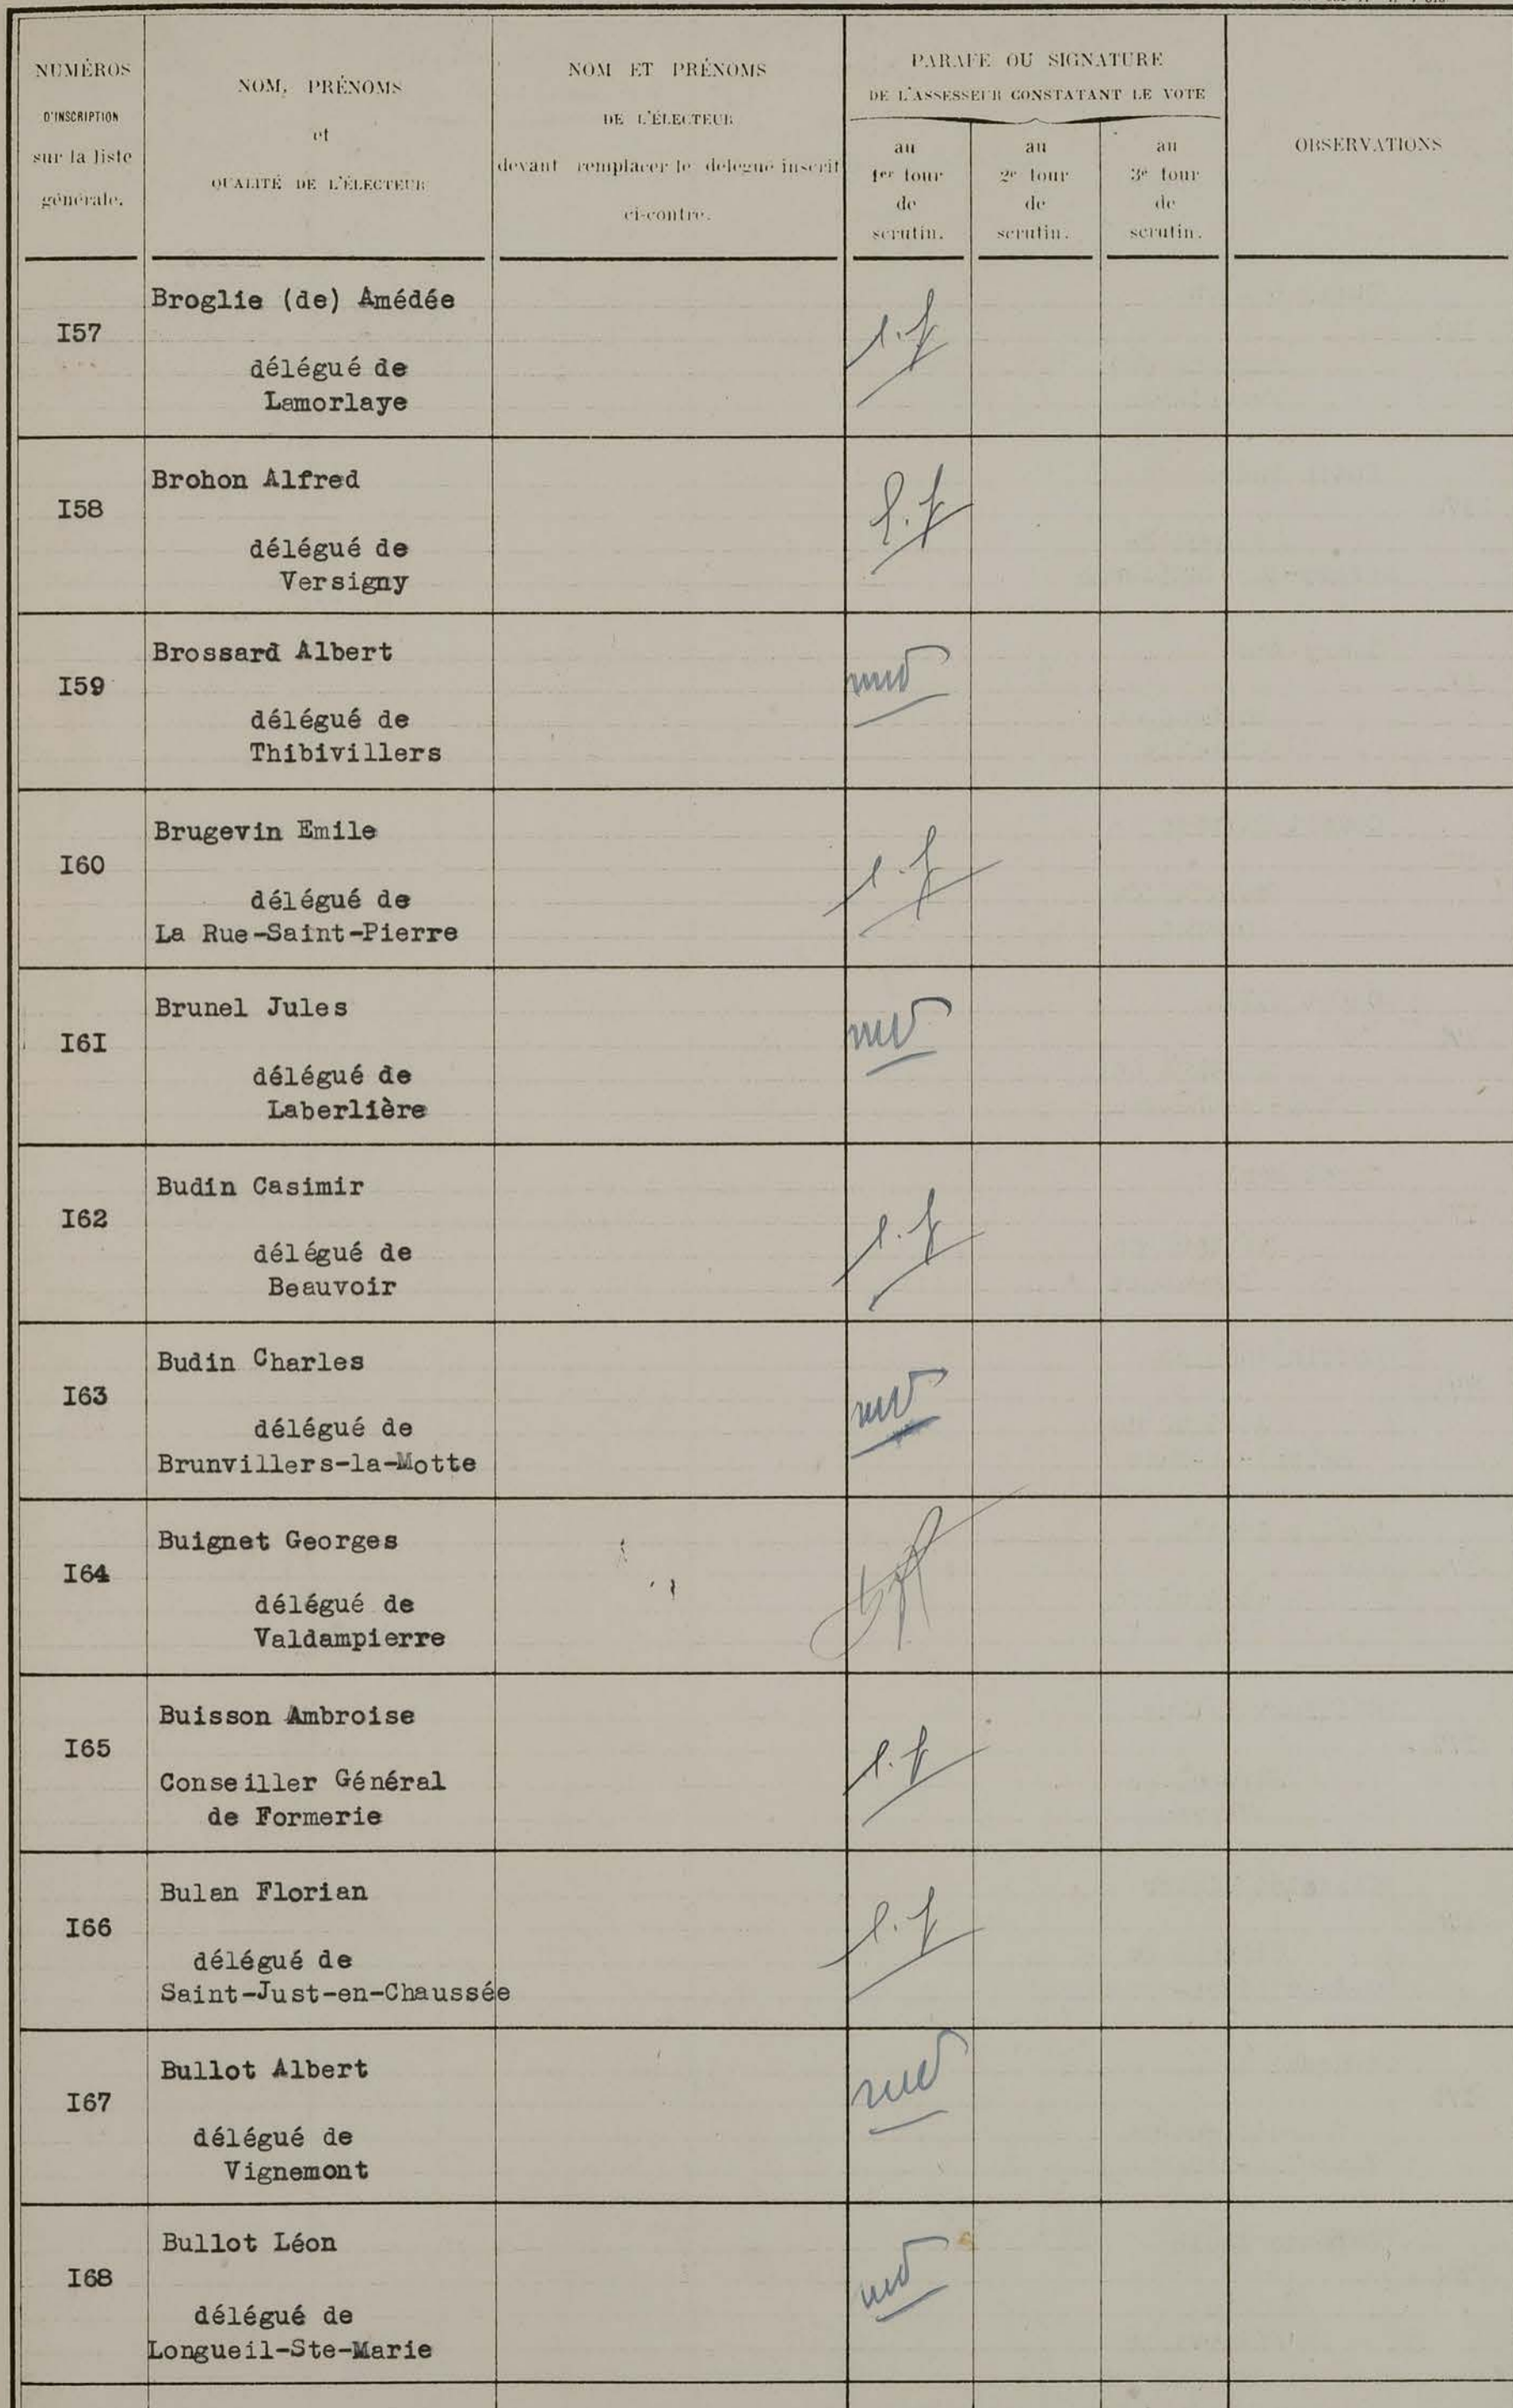 NUMÉROS
D'INSCRIPTION
sur la liste
générale.
NOM, PRÉNOMS
et
QUALITÉ DE L'ÉLECTEUR
NOM ET PRÉNOMS
DE L'ÉLECTEUR
devant remplacer le délégué inscrit
ci-contre.
PARAFE OU SIGNATURE
DE L'ASSESSEUR CONSTATANT LE VOTE
au
1er tour
de
scrutin.
au
2e tour
de
scrutin.
au
3e tour
de
scrutin.
OBSERVATIONS
I57
Broglie (de) Amédée
délégué de
Lamorlaye
I58
Brohon Alfred
délégué de
Versigny
I59
Brossard Albert
délégué de
Thibivillers
I60
Brugevin Emile
délégué de
La Rue-Saint-Pierre
I6I
Brunel Jules
délégué de
Laberlière
I62
Budin Casimir
délégué de
Beauvoir
I63
Budin Charles
délégué de
Brunvillers-la-Motte
I64
Buignet Georges
délégué de
Valdampierre
I65
Buisson Ambroise
Conseiller Général
de Formerie
I66
Bulan Florian
délégué de
Saint-Just-en-Chaussée
I67
Bullot Albert
délégué de
Vignemont
I68
Bullot Léon
délégué de
Longueil-Ste-Marie